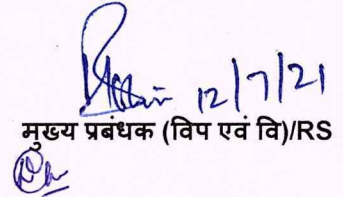 12/7/21
मुख्य प्रबंधक (विप एवं वि)/RS